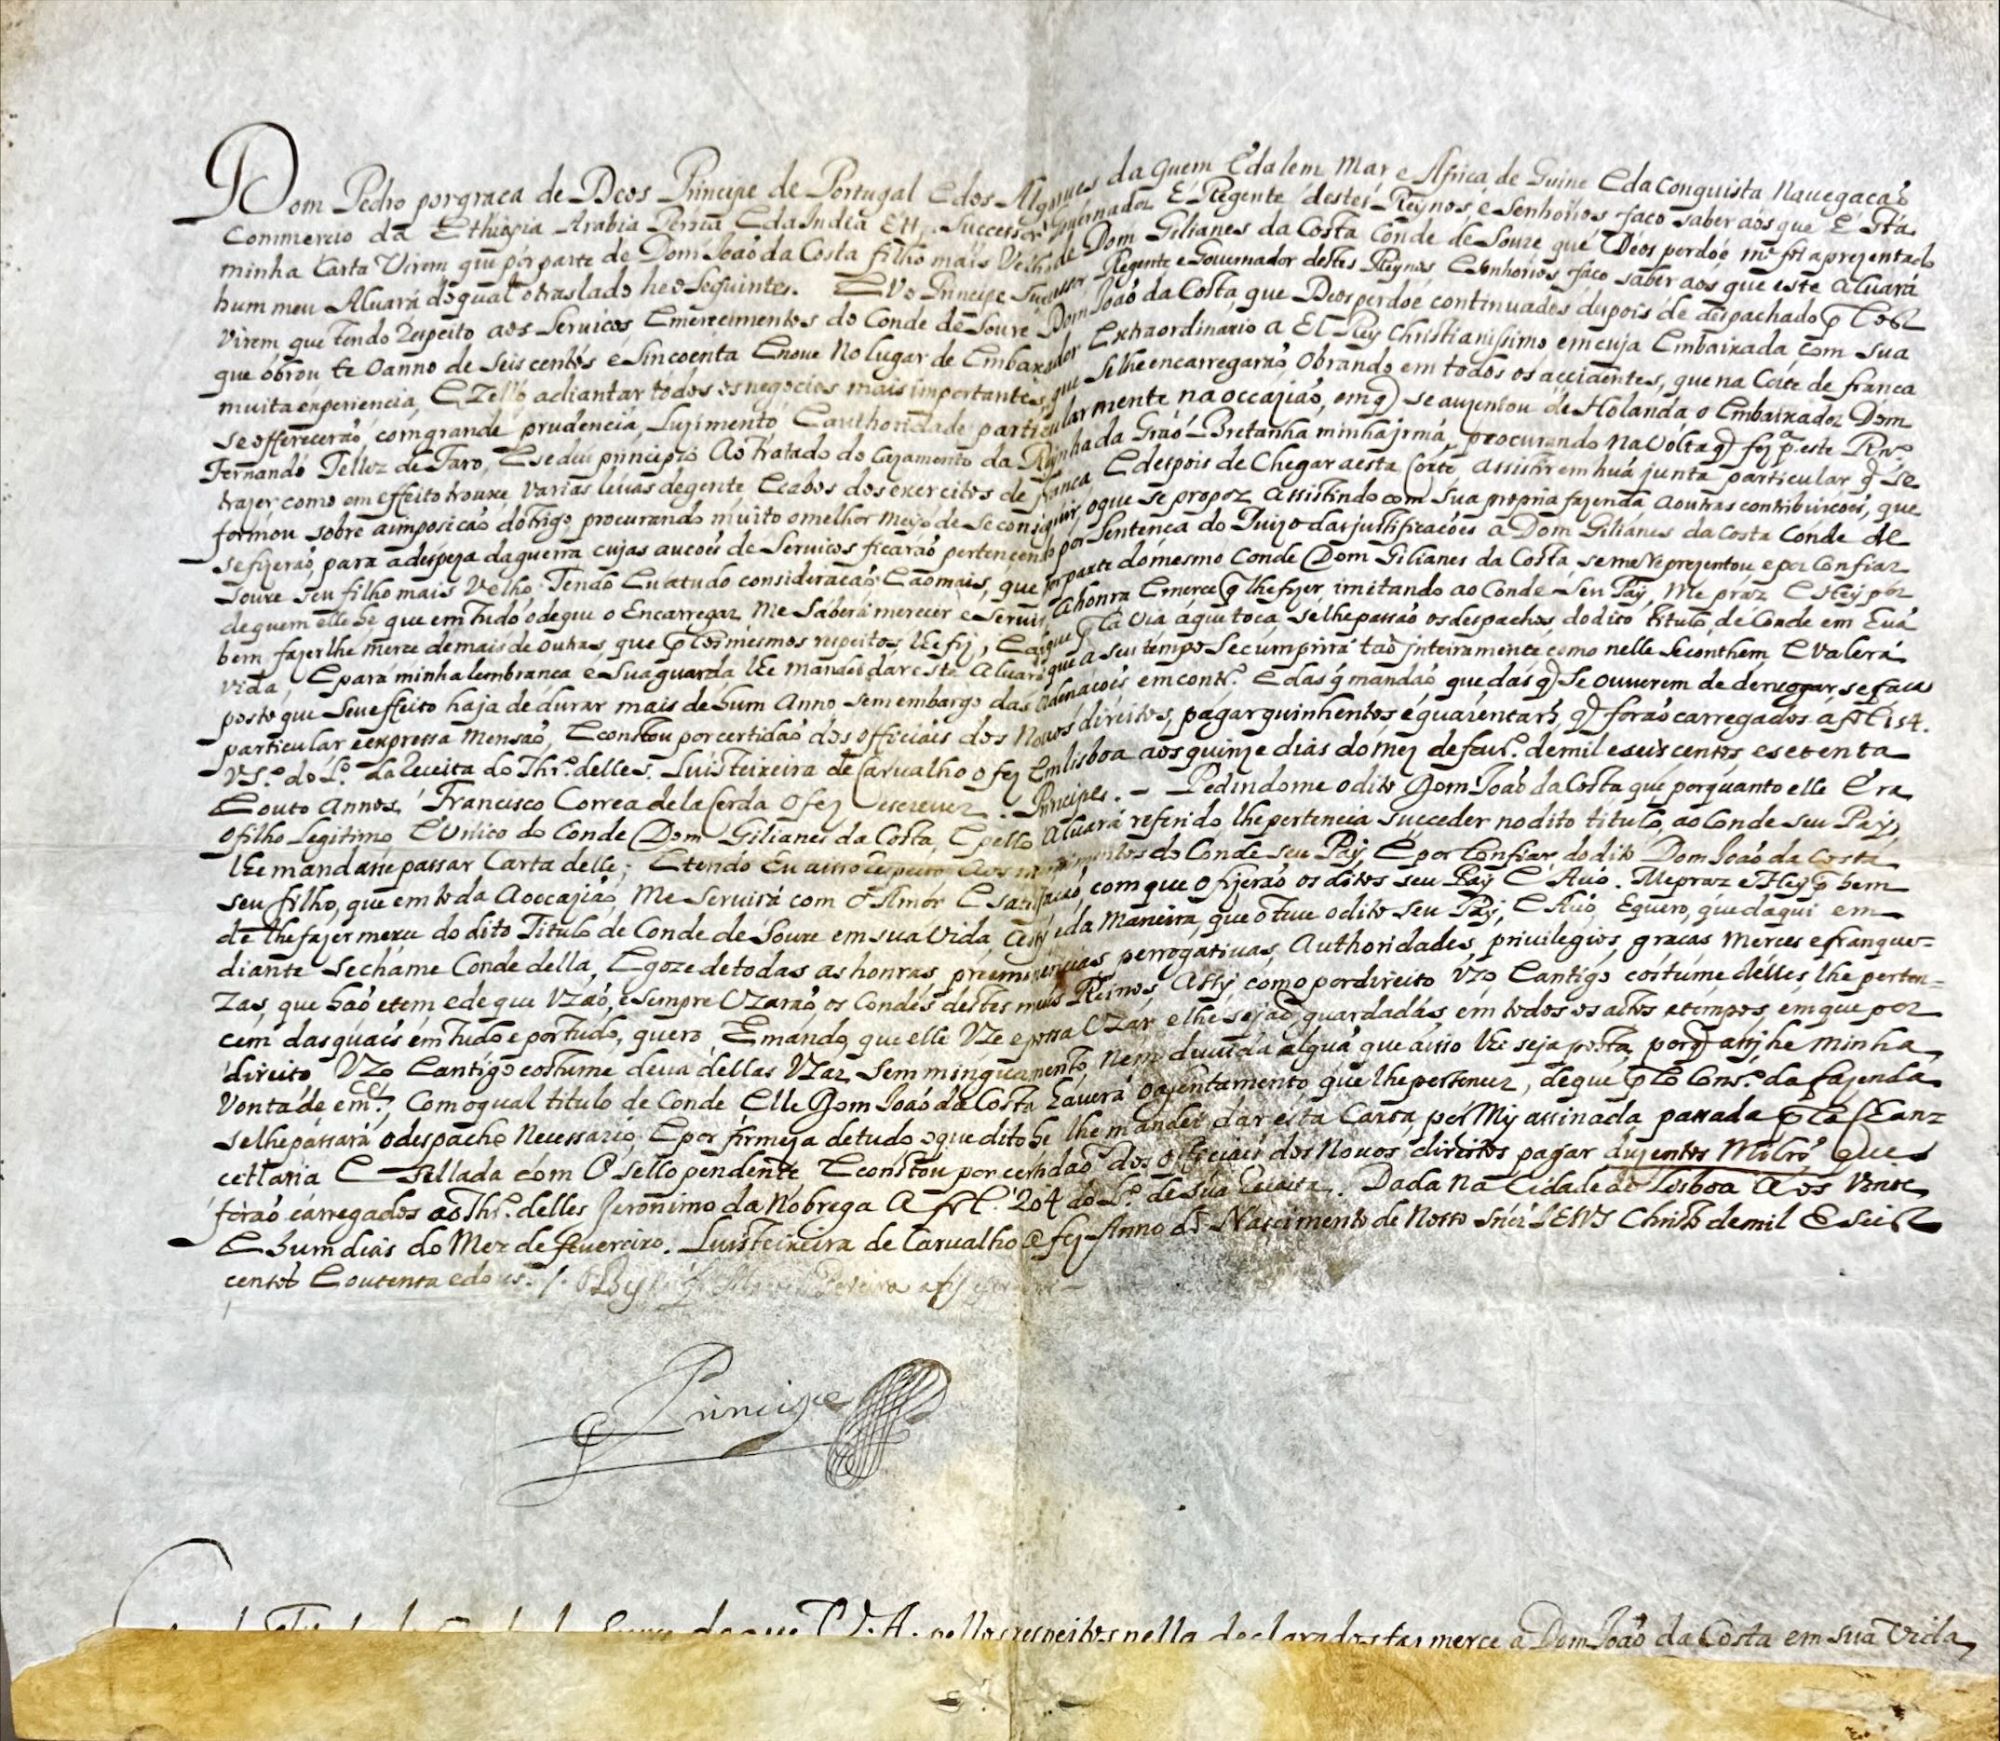 Dom Pedro por graca de Deos Principe de Portugal e dos Algarues da quem e dalem Mar e Africa de Guine e da Conquista Nauegacaõ
Commercio da Ethiopia Arabia Persia e da India Ettª. Successor Guernador E Regente destes Reynos e Senhorios faco saber aos que Esta
minha Carta Virem que por parte de Dom Joaõ da Costa filho mais Velho de Dom Gilianes da Costa Conde de Soure que Deos perdoe me foi aprezentado
hum meu Aluará do qual o traslado he o Seguinte. Eu o Principe Successor Regente e Gouernador destes Reynos e Senhorios faco saber aos que este Aluará
Virem que tendo Respeito aos Seruicos e merecimentos do Conde de Soure Dom Joaõ da Costa, que Deos perdoe continuados depois de despachado
que obrou te o anno de seis centos e sincoenta e noue No lugar de Embaxador Extraordinario a El Rey Christianissimo em cuja Embaixada com sua
muita experiencia, e Zello adiantar todos os negocios mais importantes, que se lhe encarregaraõ, Obrando em todos os accidentes, que na Corte de franca
se offereceraõ, com grande prudencia, Luzimento e authoridade particularmente na occaziaõ, em q̃ se auzentou de Holanda o Embaixador Dom
Fernando Tellez de Faro, e se deu principio Ao tratado do Cazamento da Rainha da Graõ Bretanha minha jrmá, procurando na Volta q̃ fez pª. este Rnº.
trazer como em effeito trouxe, Varias leuas de gente e cabos dos exercitos de franca e despois de Chegar a esta Corte assistir em huá junta particular q̃ se
formou sobre a imposicaõ do trigo, procurando muito o melhor meyo de se conseguir, o que se propoz assistindo com sua propria fazenda a outras contribuicoẽs, que
se fizeraõ, para a despeza da guerra cujas aucoẽs de Seruicos ficaraõ pertencendo por Sentenca do Juizo das justificacoẽs a Dom Gilianes da Costa Conde de
Soure seu filho mais Velho. Tendo Eu a tudo consideracaõ e ao mais, que por parte do mesmo Conde Dom Gilianes da Costa se me reprezentou e por confiar
de quem elle he que em tudo o de que o Encarregar Me saberá merecer e Seruir, a honra e merce q̃ lhe fizer, imitando ao Conde Seu Pay, Me praz e Hey por
bem fazerlhe merce de mais de outras que pellos mesmos respeitos lhe fiz,
Vida, e para minha lembranca e Sua guarda lhe mandei dar este Aluará que a seu tempo se cumprirá taõ jnteiramente como nelle se conthem e Valera
posto que Seu effeito haja de durar mais de hum Anno sem embargo das Ordenacoẽs em contrº. e das q̃ mandaõ que das q̃ se ouuerem de derrogar se faca
particular e expressa mensaõ, e constou por certidaõ dos officiais dos Nouos direitos, pagar quinhentos e quarenta rs, q̃ foraõ carregados a fol 154.
Vsº. do Lº. da receita do Thrº. delles. Luis Teixeira de Carualho o fez Em lisboa aos quinze dias do mez de feurº. de mil e seis centos e setenta
e outo annos, Francisco Correa de la Cerda o fez escreuer. Principe. - Pedindome o dito Dom Joaõ da Costa que porquanto elle Era
o filho Legitimo, e Vnico do Conde Dom Gilianes da Costa, e pello Aluará referido, lhe pertencia Succeder no dito titulo, ao Conde seu Pay,
lhe mandasse passar Carta delle; e tendo Eu a isso respeito aos merecimentos do Conde seu Pay, e por Confiar, do dito Dom Joaõ da Costa
seu filho, que em toda a occaziaõ, Me Seruirá com o Amor e satisfacaõ com que o fizeraõ os ditos seu Pay e Auó. Me praz e Hey por bem
de lhe fazer merce do dito Titulo de Conde de Soure em sua Vida Assy e da Maneira, que o teue o dito seu Pay, e Auó, e quero, que daqui em
diante se chame Conde della, e goze de todas as honras, preeminencias, perrogatiuas, Authoridades, priuilegios, gracas merces e franque-
zas, que haõ e tem e de que Uzaõ, e sempre Uzaraõ, os Condes destes meus Reinos, Assy, como por direito Uzo e antigo costume delles, lhe perten-
cem das quais em tudo e por tudo, quero, e mando, que elle Uze e possa Uzar e lhe sejaõ guardadas em todos os actos e tempos, em que por
direito Uzo e antigo costume deua dellas Uzar sem minguamento, Nem duuida algua que a isso lhe seja posta, porq̃ assj he Minha
Vontade e m.ce, Com o qual titulo de Conde Elle Dom Joaõ da Costa hauerá o asentamento, que lhe pertencer, de que pello Consº. da fazenda
se lhe passará o despacho Necessario, e por firmeza de tudo, o que dito he lhe mandei dar esta Carta por My assinada passada pella Chan-
cellaria e Sellada com O sello pendente e constou por certidaõ dos officiais dos Nouos direitos pagar duzentos Mil rs Que
foraõ carregados ao Thrº. delles Jeronimo da Nobrega A fol. 204 do Lº. de sua receita. Dada na Cidade de Lisboa Aos Vinte
e hum dias do Mez de feuereiro. Luis Teixeira de Carualho o fez Anno do Nascimento de Nosso Snõr JEVS Christo de mil e seis
centos e outenta e dous. Pereira
Principe
que V. A. pellos respeitos nella declarados faz merce a Dom Joaõ da Costa em sua Vida